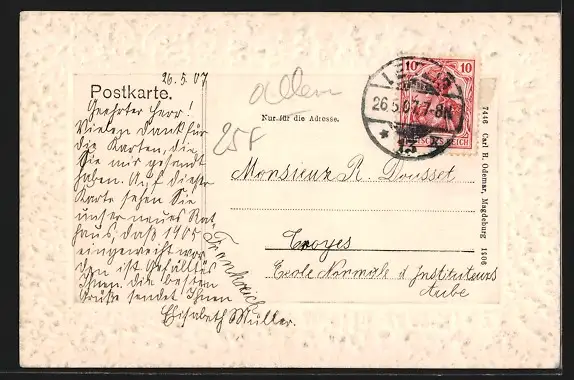 26.5.07
Postkarte.
Geehrter Herr!
Vielen Dank für
die Karten, die
Sie mir gesandt
haben. Auf dieser
Karte sehen Sie
unser neues Rat
haus, daß 1905
eingeweiht wor
den ist Gefällt es
Ihnen. die besten
Grüße sendet Ihnen
Elisabeth Müller.
allem
25F
Nur für die Adresse.
10 10
26.5.07.7-8N
* 13 *
Monsieur R. Dousset
Troyes
Ecole Normale d'Instituteurs
Aube
Frankreich
7446 Carl H. Odemar, Magdeburg 1906